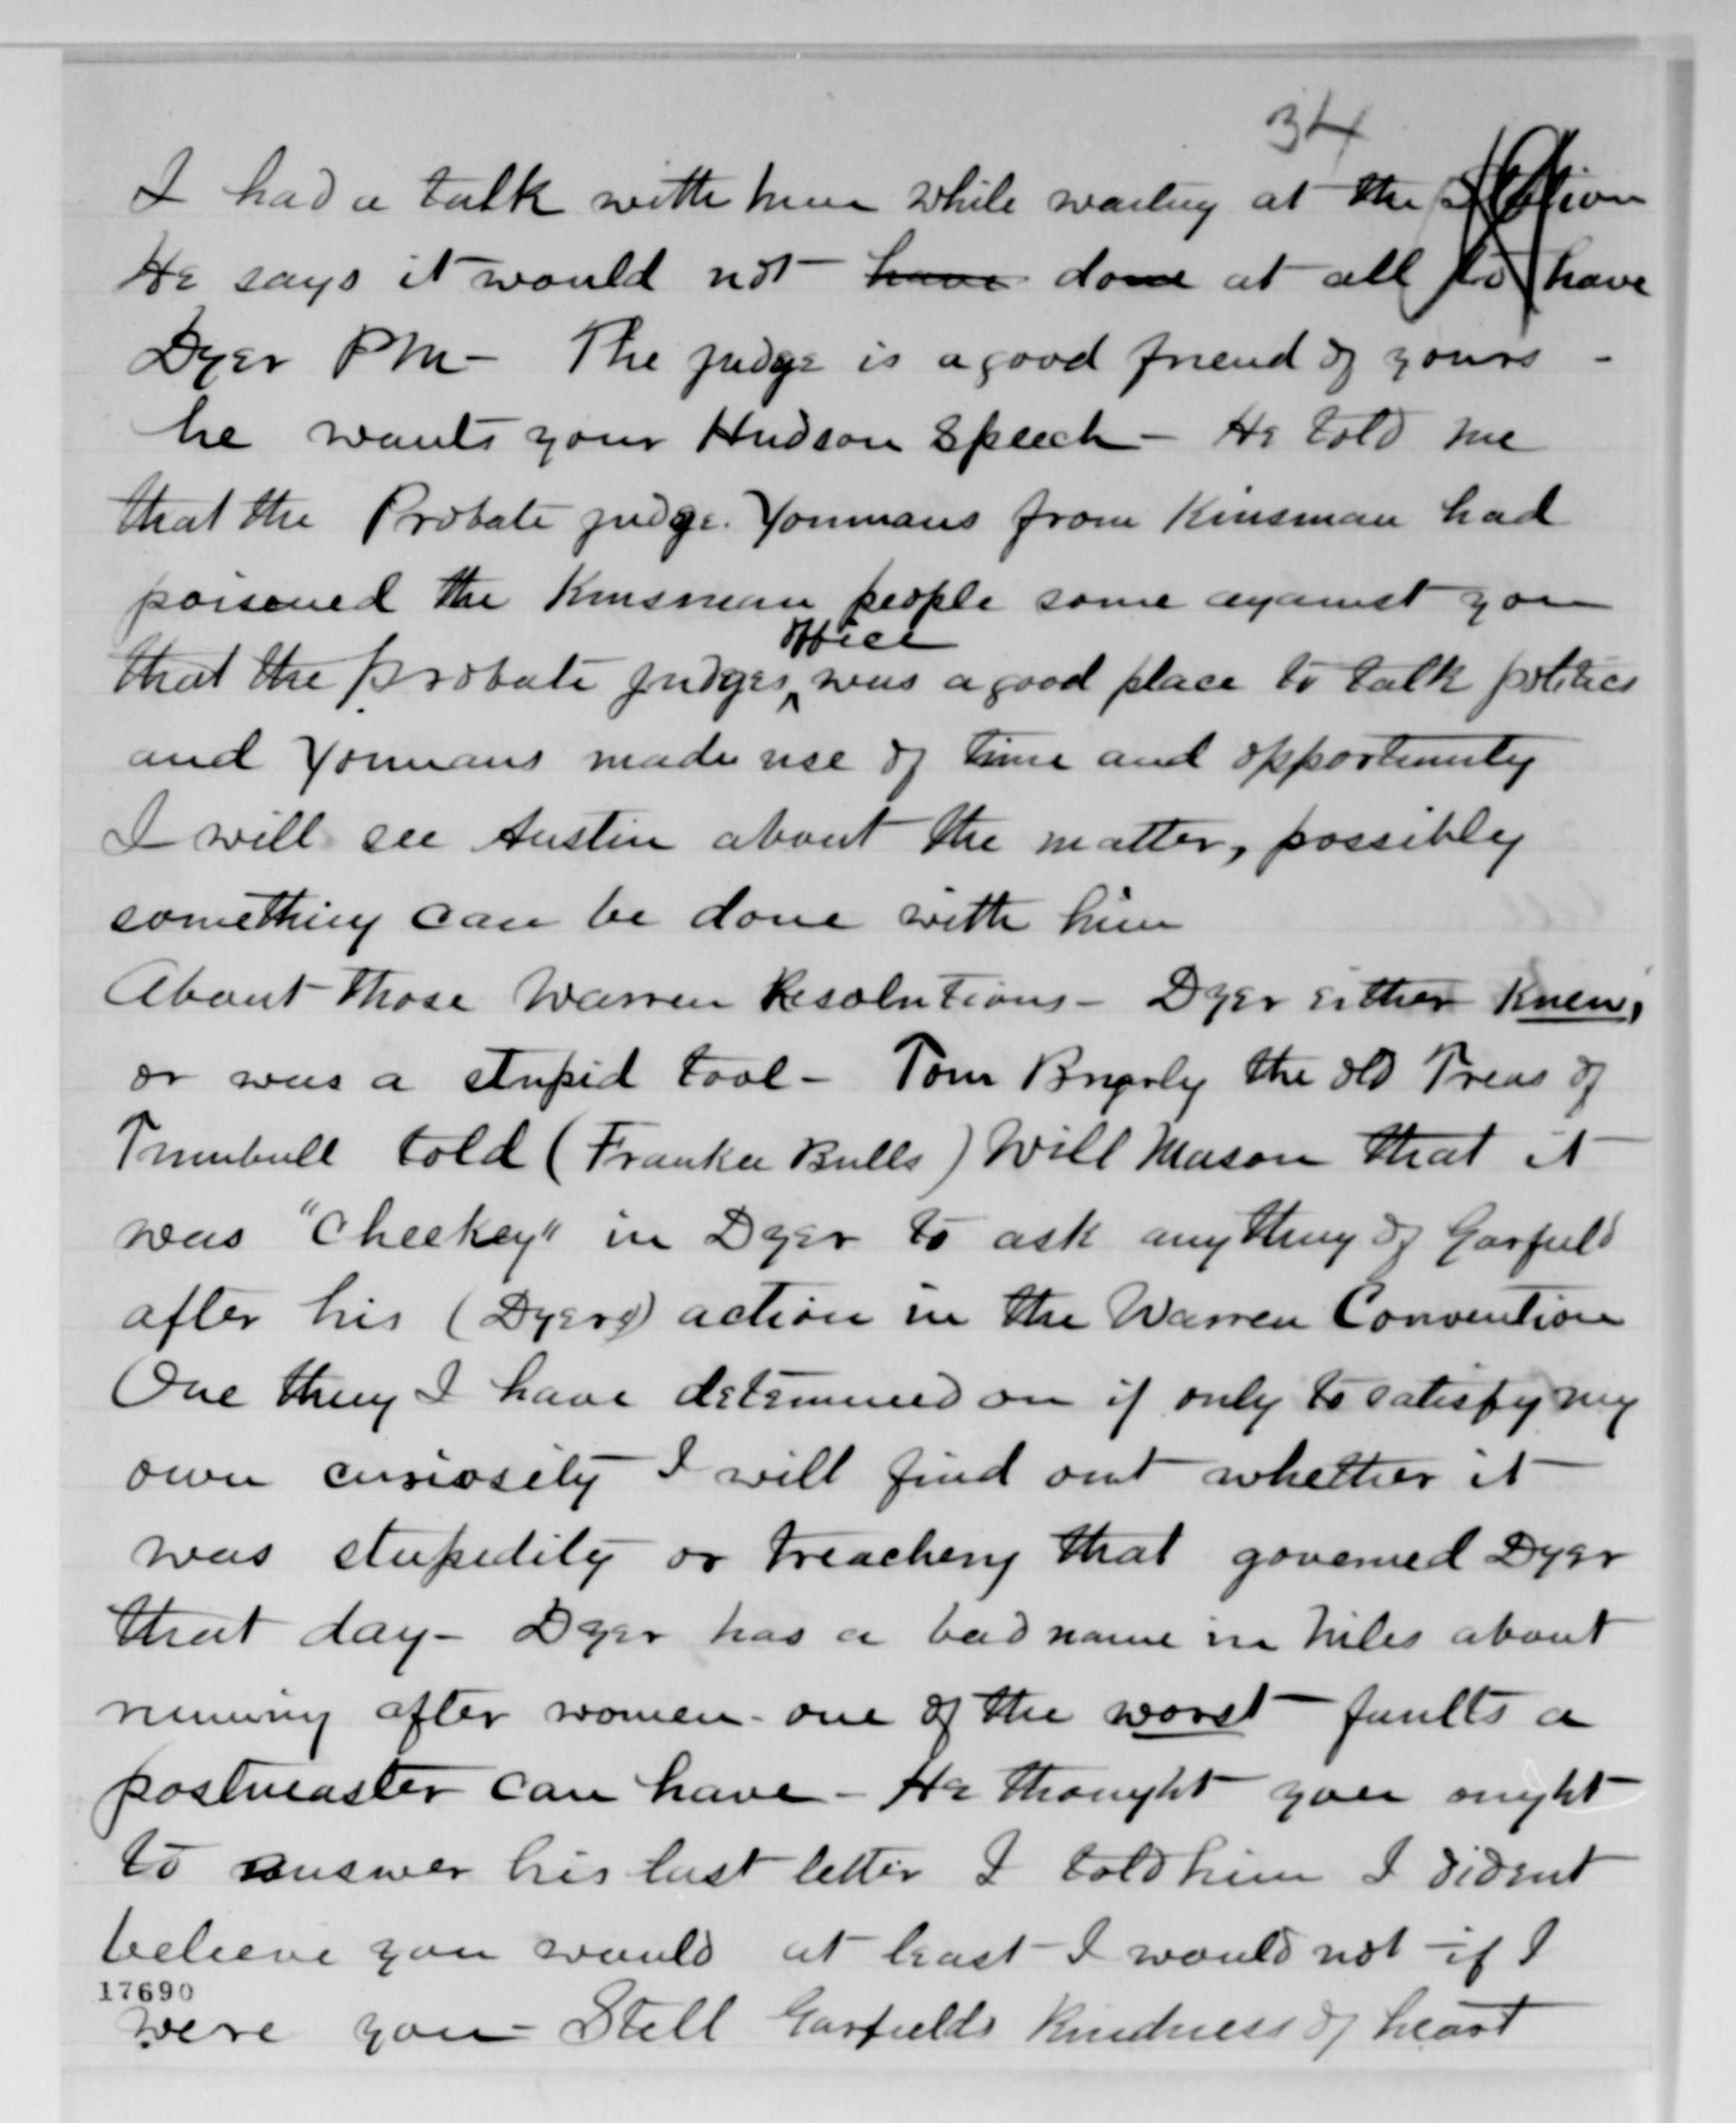 34
I had a talk with him while waiting at the station
He says it would not have done at all to have
Dyer PM - The judge is a good friend of yours -
he wants your Hudson Speech - He told me
that the Probate judge. Youmans from Kinsman had
poisoned the Kinsman people some against you
office
that the probate judges ^ was a good place to talk politics
and Youmans made use of time and opportunity
I will see Austin about the matter, possibly
something can be done with him
About those Warren Resolutions - Dyer either knew,
or was a stupid tool - Tom the old Treas of
Trumbull told (Frankee Bulls) Will Mason that it
was "Cheekey" in Dyer to ask anything of Garfield
after his (Dyers) action in the Warren Convention
One thing I have determined on if only to satisfy my
own curiosity I will find out whether it
was stupidity or treachery that governed Dyer
that day - Dyer has a bad name in Niles about
running after women - one of the worst faults a
postmaster can have - He thought you ought
to answer his last letter I told him I dident
believe you would at least I would not if I
17690
were you - Still Garfields kindness of heart